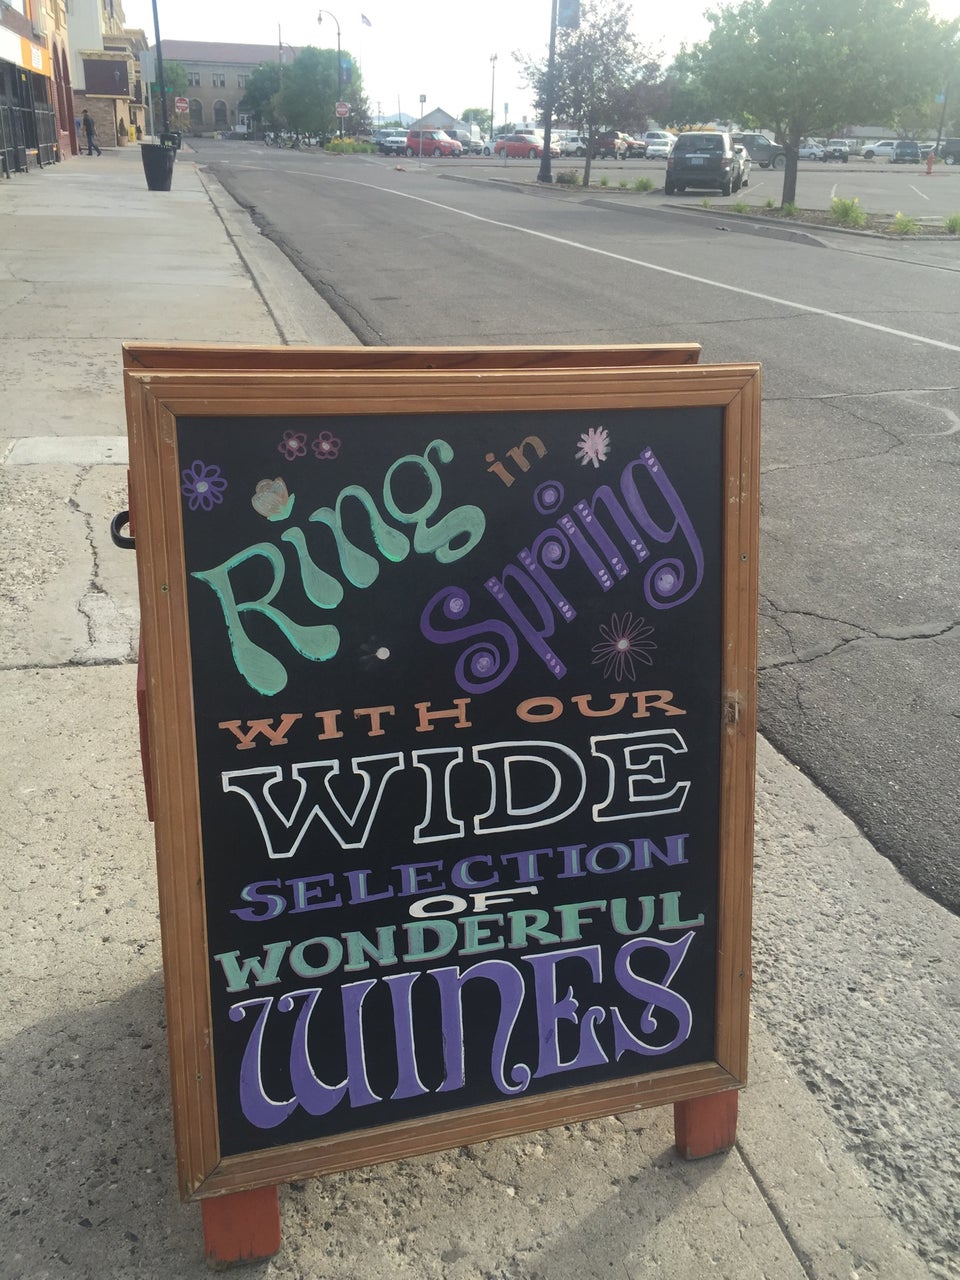 Ring in
Spring
WITH OUR
WIDE
SELECTION
OF
WONDERFUL
WINES